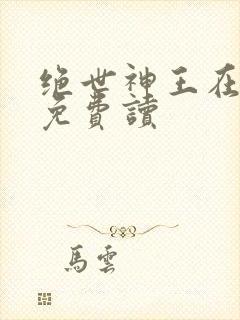 绝世神王在
免費讀
馬雲